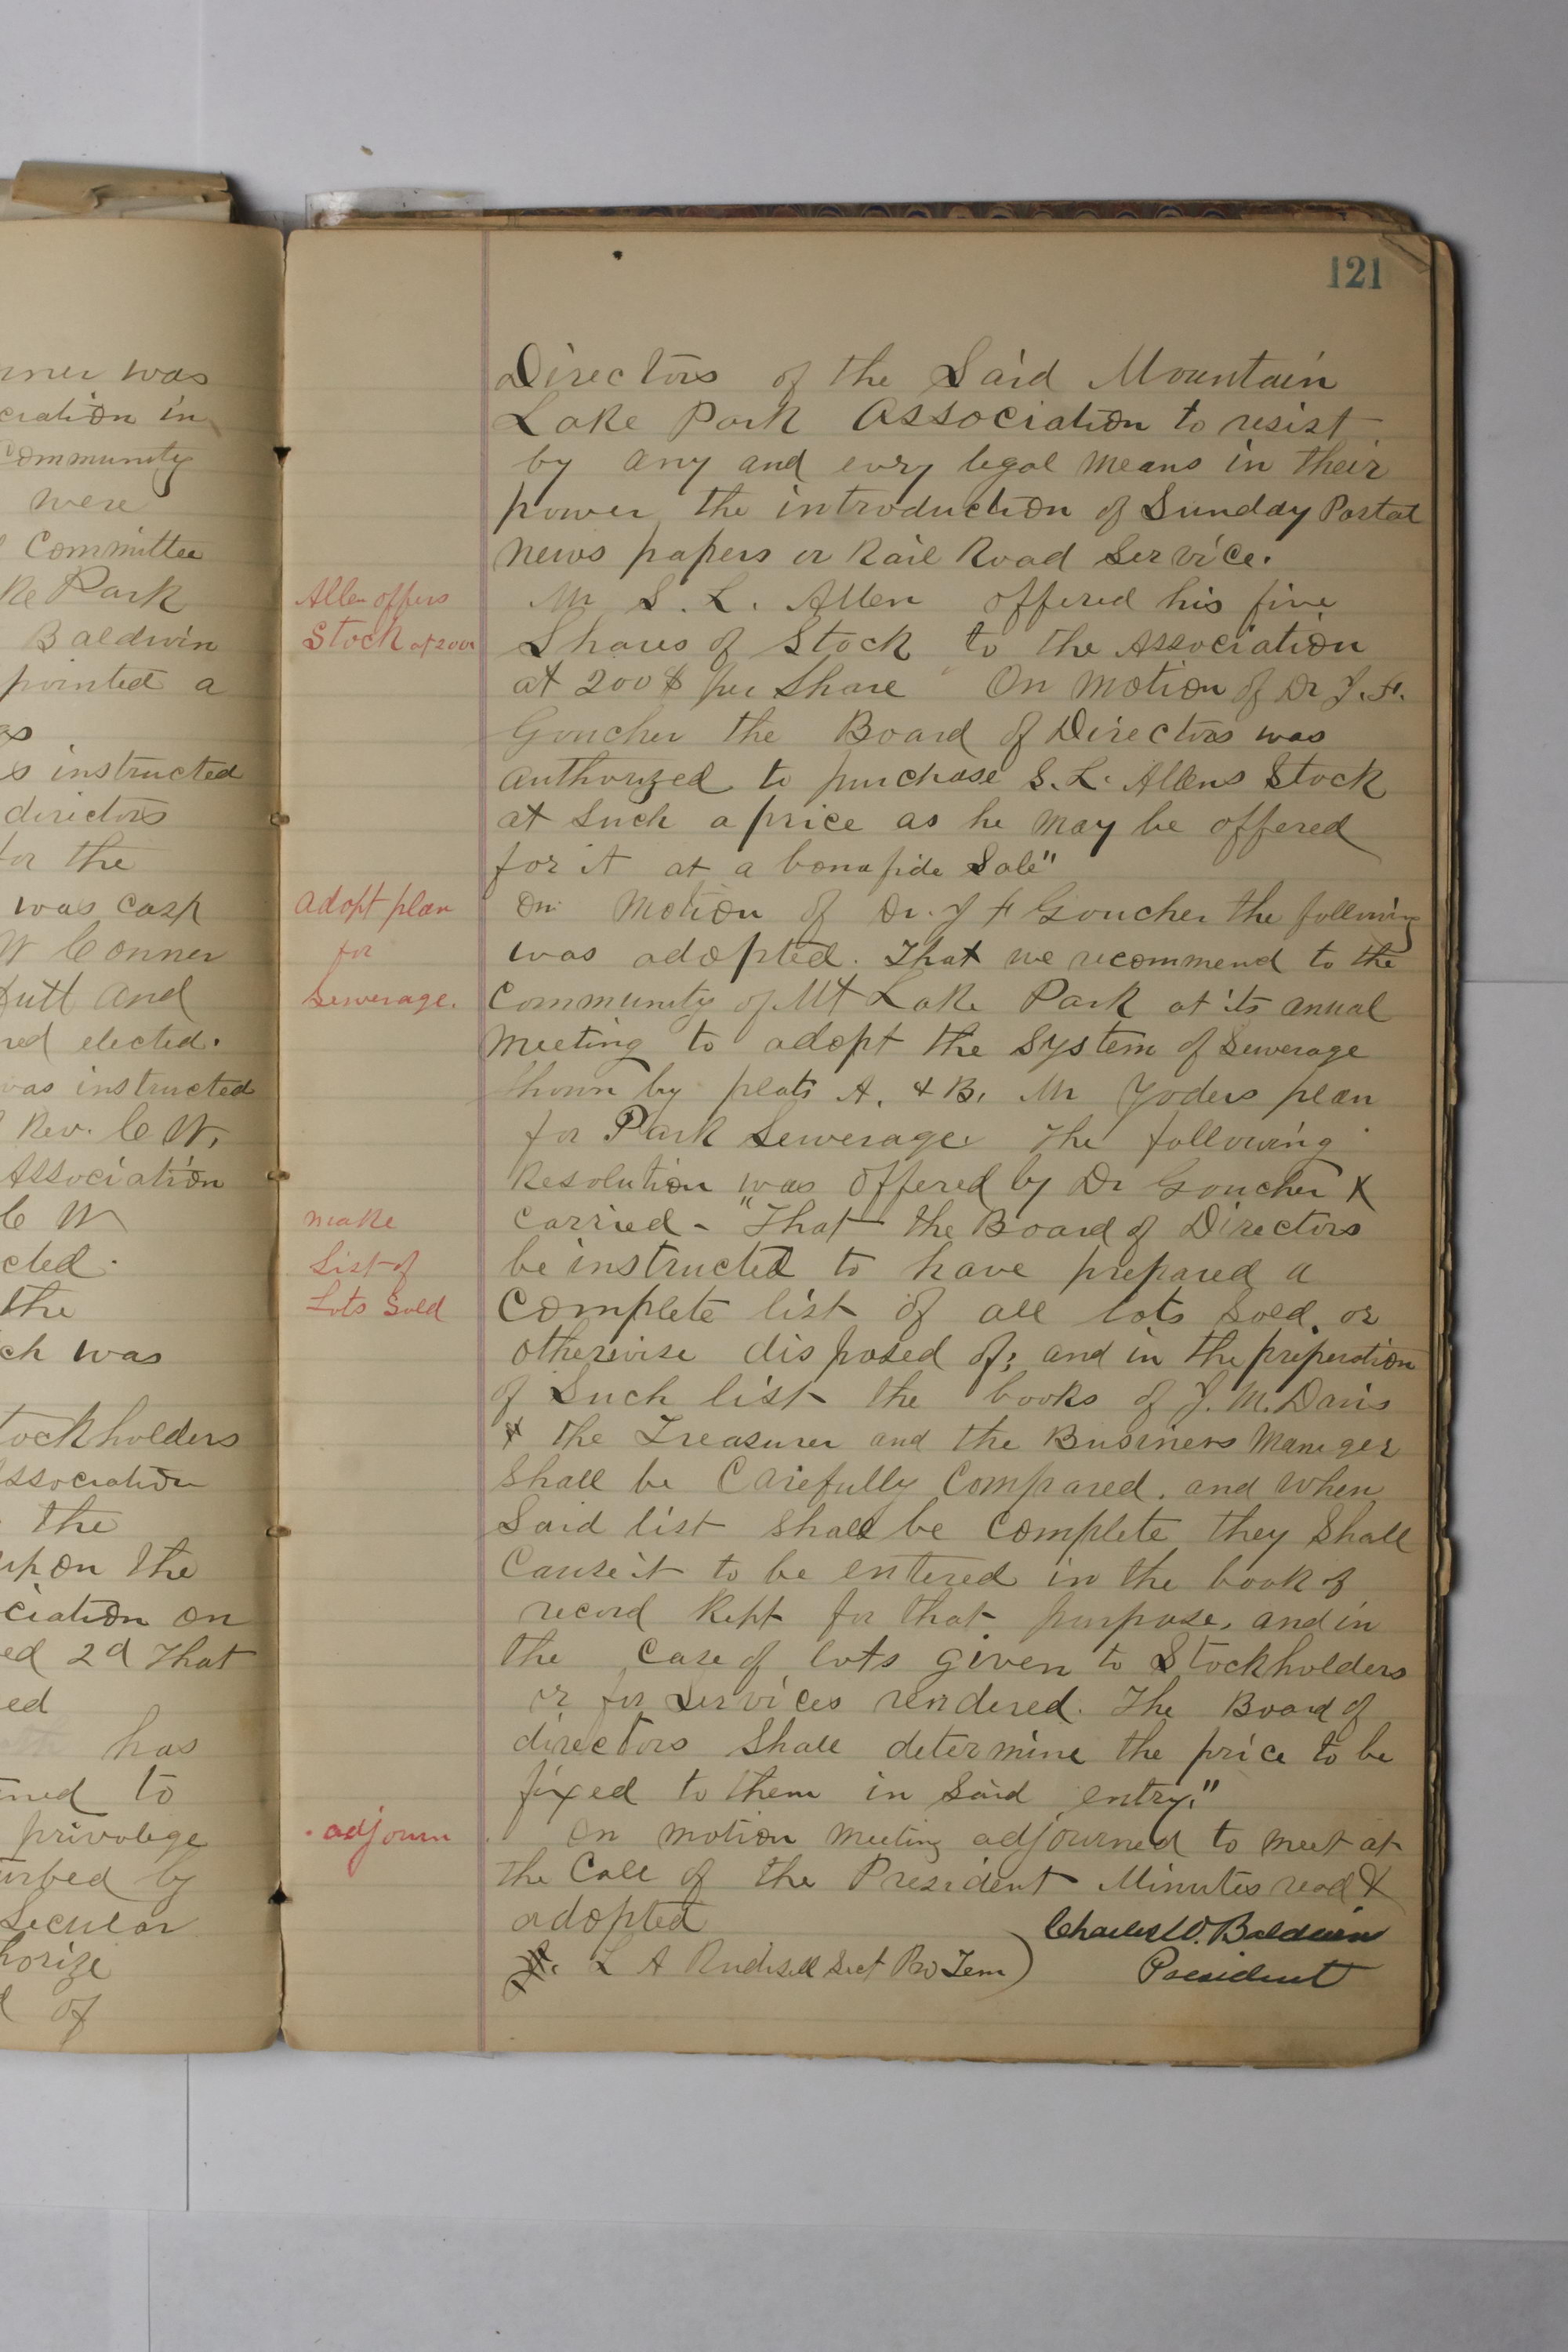 nner was
ciation in
Community
were
Committee
Ke Park
Baldwin
pointed a
s instructed
directors
for the
was cash
W Conner
Dutt and
red elected.
was instructed
Rev. C W,
Association
C W
cted.
the
ch was
tockholders
Association
the
upon the
ciation on
ed 2d That
ed
has
ned to
privolege
urbed by
Secular
horize
of
121
Directors of the Said Mountain
Lake Park Association to resist
by any and evry legal means in their
power the introduction of Sunday Postal
news papers or Rail Road Service.
Allen offers
Stock at 200
Mr S. L. Allen offered his five
Shares of Stock to the Association
at 200$ per Share On motion of Dr J. F.
Goucher the Board of Directors was
authorized to purchase S. L. Allens Stock
at Such a price as he may be offered
for it at a bonafide Sale"
adopt plan
for
Sewerage.
On motion of Dr. J F Goucher the following
was adopted. That we recommend to the
Community of Mt Lake Park at its anual
meeting to adopt the System of Sewerage
Shown by plats A. & B. Mr Yoders plan
for Park Sewerage The following
Resolution was offered by Dr Goucher &
make
List of
Lots Sold
carried - "That the Board of Directors
be instructed to have prepared a
Complete list of all lots Sold, or
otherwise disposed of; and in the preperation
of Such list the books of J. M. Davis
& the Treasurer and the Business Maneger
Shall be Carefully Compared. and when
Said list shall be Complete they Shall
Cause it to be entered in the book of
record Kept for that purpose, and in
the case of lots given to Stockholders
or for Services rendered. The Board of
directors Shall determine the price to be
fixed to them in Said entry."
adjourn
On motion meeting adjourned to meet at
the Call of the President Minutes read &
adopted
L A Rudisill Sect Pro Tem)
Charles W. Baldwin
President